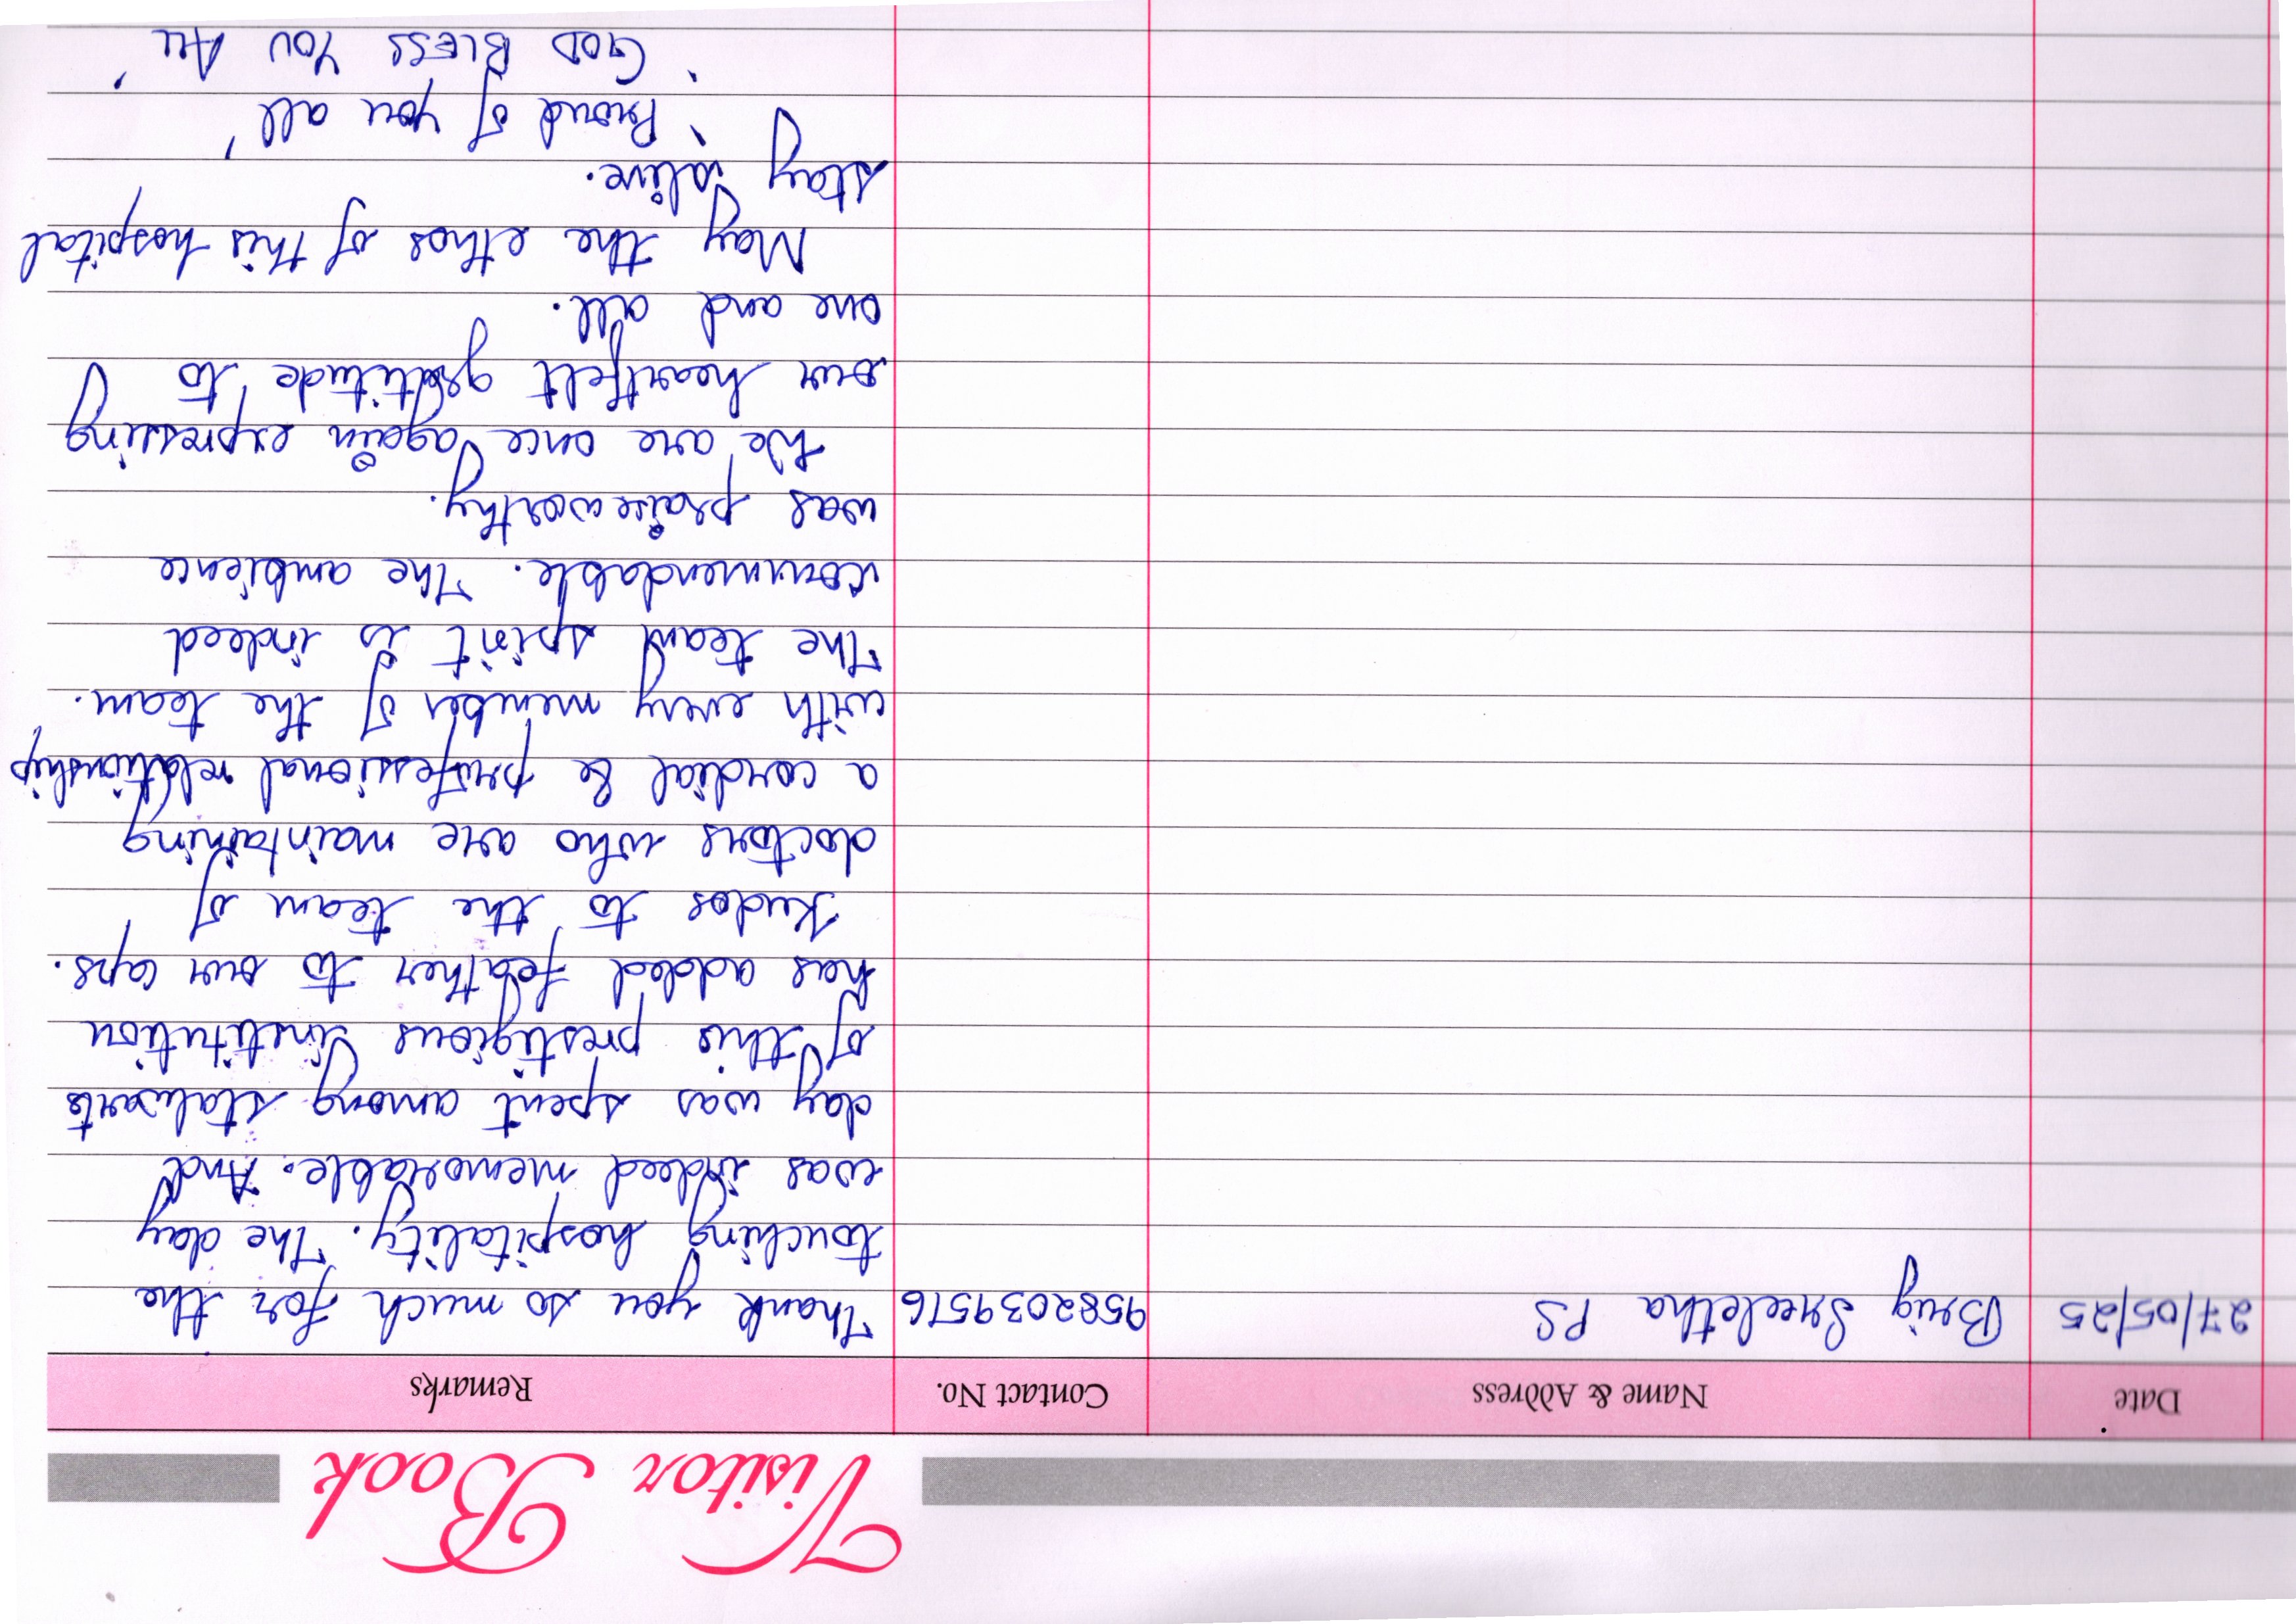 Visitor Book
Date Name & Address Contact No. Remarks
27/05/25 Brig Sreeletha PS 9582039576 Thank you so much for the
touching hospitality. The day
was indeed memorable. And
day was spent among stalwarts
of this prestigious institution
has added feather to our caps.
Kudos to the team of
doctors who are maintaining
a cordial & professional relationship
with every member of the team.
The team spirit is indeed
commendable. The ambience
was praiseworthy.
We are once again expressing
our heartfelt gratitude to
one and all.
May the ethos of this hospital
stay alive.
'Proud of you all'
'GOD BLESS YOU ALL'